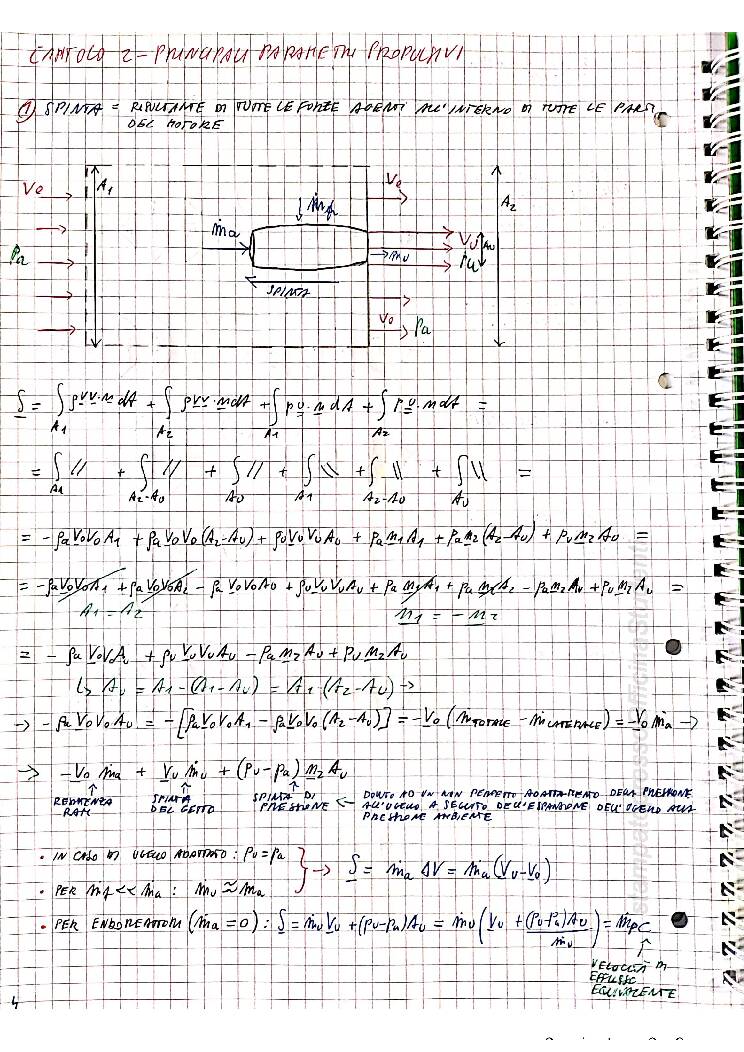 CAPITOLO 2 - PRINCIPALI PARAMETRI PROPULSIVI
① SPINTA = RISULTANTE DI TUTTE LE FORZE AGENTI ALL'INTERNO DI TUTTE LE PARTI
DEL MOTORE
V0 A1 V0 A2
ṁa ṁf
Pa Vu Au
ṁu Pu
SPINTA
V0 Pa
S = ∫A1 ρVV·n dA + ∫A2 ρVV·n dA + ∫A1 pU·n dA + ∫A2 pU·n dA =
= ∫A1 // + ∫A2-AU // + ∫AU // + ∫A1 \\ + ∫A2-AU \\ + ∫AU \\ =
= -ρa V0 V0 A1 + ρa V0 V0 (A2-AU) + ρU VU VU AU + pa n1 A1 + pa n2 (A2-AU) + pU n2 AU =
= -ρa V0 V0 A1 + ρa V0 V0 A2 - ρa V0 V0 AU + ρU VU VU AU + pa n1 A1 + pa n2 A2 - pa n2 AU + pU n2 AU =
A1 = A2 n1 = -n2
= -ρa V0 V0 AU + ρU VU VU AU - pa n2 AU + pU n2 AU
↳ AU = A1 - (A1-AU) = A1 - (A2-AU) →
→ -ρa V0 V0 AU = -[ρa V0 V0 A1 - ρa V0 V0 (A2-AU)] = -V0 (ṁTOTALE - ṁLATERALE) = -V0 ṁa →
→ -V0 ṁa + VU ṁU + (pU-pa) n2 AU
RESISTENZA RAM
SPINTA DEL GETTO
SPINTA DI PRESSIONE ← DOVUTO AD UN NON PERFETTO ADATTAMENTO DELLA PRESSIONE
ALL'UGELLO A SEGUITO DELL'ESPANSIONE DELL'UGELLO ALLA
PRESSIONE AMBIENTE
• IN CASO DI UGELLO ADATTATO: pU = pa
→ S = ṁa ΔV = ṁa (VU-V0)
• PER ṁf << ṁa : ṁU ≅ ṁa
• PER ENDOREATTORI (ṁa = 0): S = ṁU VU + (pU-pa) AU = ṁU (VU + (pU-pa)AU / ṁU) = ṁp C
VELOCITÀ DI
EFFLUSSO
EQUIVALENTE
4